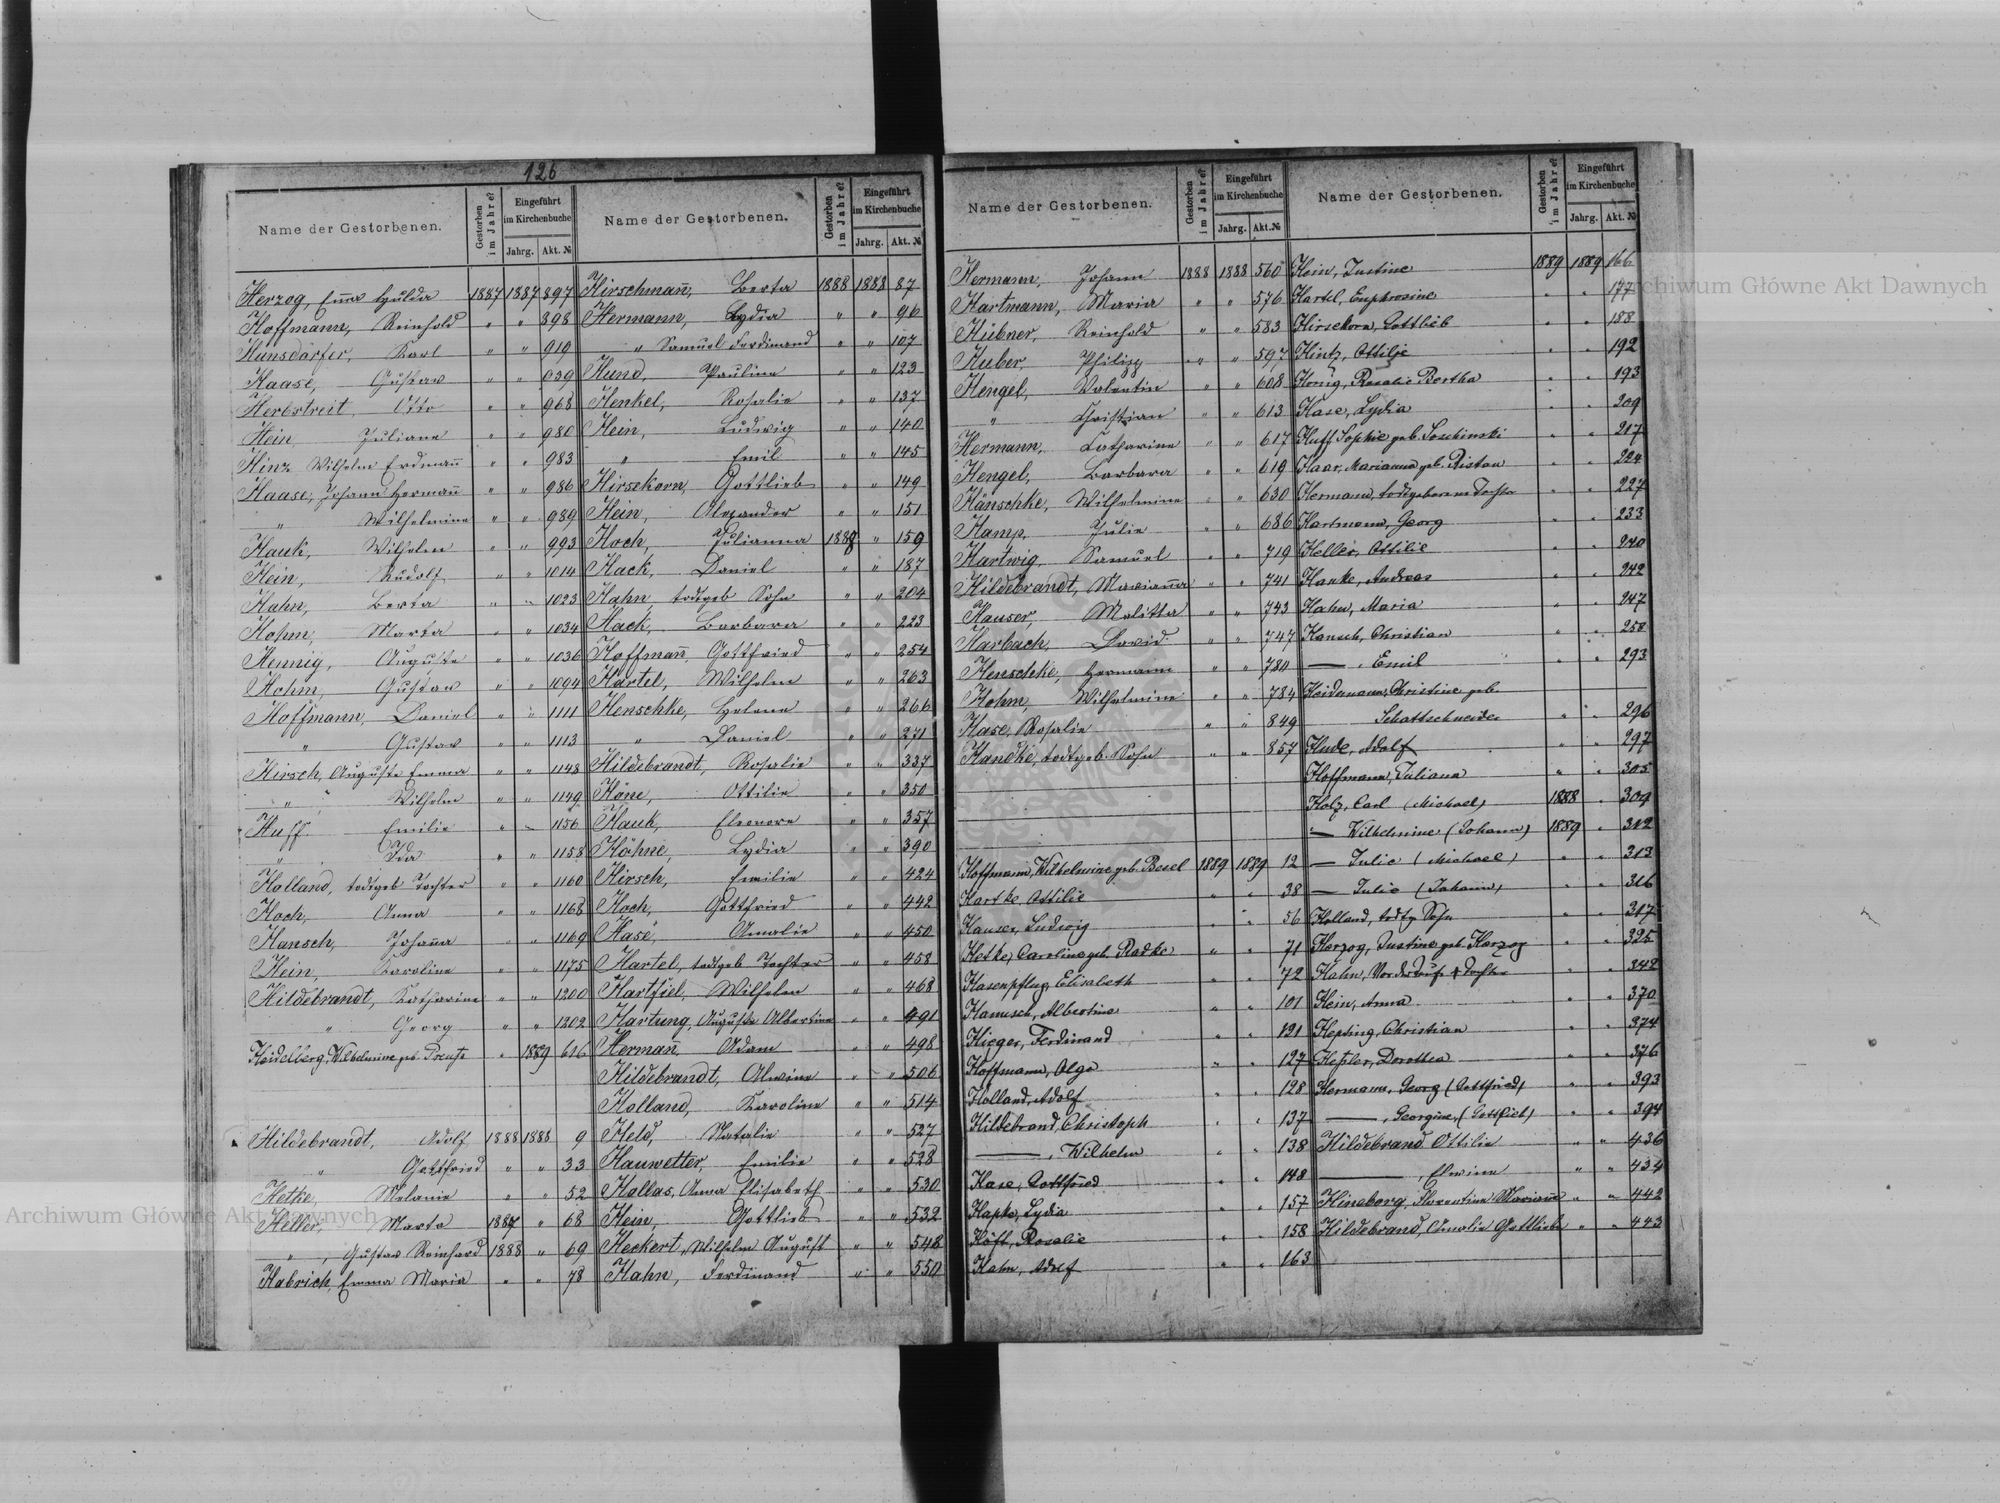 126
Name der Gestorbenen.
Gestorben im Jahre?
Eingeführt im Kirchenbuche
Jahrg. Akt. №
Herzog, Emma Hulda 1887 1887 897
Hoffmann, Reinhold " " 898
Hunsdörfer, Karl " " 919
Haase, Gustav " " 939
Herbstreit, Otto " " 968
Hein, Juliane " " 980
Hinz Wilhelm Erdmann̄ " " 983
Haase, Johann Hermann̄ " " 986
" Wilhelmine " " 989
Hauk, Wilhelm " " 993
Hein, Rudolf " " 1014
Hahn, Berta " " 1023
Hohm, Marta " " 1034
Hennig, Auguste " " 1036
Hohm, Gustav " " 1094
Hoffmann, Daniel " " 1111
" Gustav " " 1113
Hirsch, Auguste Emma " " 1148
" Wilhelm " " 1149
Huff Emilie " " 1156
" Ida " " 1158
Holland, todtgeb Tochter " " 1160
Hoch, Anna " " 1168
Hansch, Johanna " " 1169
Hein, Karoline " " 1175
Hildebrandt, Katharine " " 1200
" Georg " " 1202
Heidelberg, Wilhelmine geb. " 1889 616
Hildebrandt, Adolf 1888 1888 9
" Gottfried " " 33
Hetke, Melanie " " 52
Heller, Marta 1887 " 68
" , Gustav Reinhard 1888 " 69
Habrich, Emma Maria " " 78
Name der Gestorbenen.
Gestorben im Jahre?
Eingeführt im Kirchenbuche
Jahrg. Akt. №
Hirschmann̄, Berta 1888 1888 87
Hermann, Lydia " " 96
" Samuel Ferdinand " " 107
Hund, Pauline " " 123
Henkel, Rosalie " " 137
Hein, Ludwig " " 140
" Emil " " 145
Hirsekorn, Gottlieb " " 149
Hein, Alexander " " 151
Hoch, Julianna 1888 " 159
Hack, Daniel " " 187
Hahn, todtgeb Sohn " " 204
Hack, Barbara " " 223
Hoffmann̄, Gottfried " " 254
Härtel, Wilhelm " " 263
Henschke, Helene " " 266
" Daniel " " 271
Hildebrandt, Rosalie " " 337
Höne, Ottilie " " 350
Hauk, Eleonore " " 357
Höhne, Lydia " " 390
Hirsch, Emilie " " 424
Hoch, Gottfried " " 442
Hase, Amalie " " 450
Hartel, todtgeb Tochter " " 458
Hartfiel, Wilhelm " " 468
Hartung, Auguste Albertine " " 491
Herman̄, Adam " " 498
Hildebrandt, Alwine " " 506
Holland, Karoline " " 514
Held, Natalie " " 527
Hauwetter, Emilie " " 528
Hallas, Anna Elisabeth " " 530
Hein, Gottlieb " " 532
Heckert, Wilhelm August " " 548
Hahn, Ferdinand " " 550
Name der Gestorbenen.
Gestorben im Jahre?
Eingeführt im Kirchenbuche
Jahrg. Akt. №
Hermann, Johann 1888 1888 560
Hartmann, Maria " " 576
Hübner, Reinhold " " 583
Huber, Philipp " " 597
Hengel, Valentin " " 608
" Christian " " 613
Hermann, Catharine " " 617
Hengel, Barbara " " 619
Hänschke, Wilhelmine " " 630
Hamp, Julie " " 686
Hartwig, Samuel " " 719
Hildebrandt, Marianna " " 741
Hauser, Malitta " " 743
Harbach, David " " 747
Henschke, Hermann " " 780
Hohm, Wilhelmine " " 784
Hase, Rosalie " " 849
Handke, todtgeb. Sohn " " 857
Hoffmann, Wilhelmine geb. Besel 1889 1889 12
Hartke, Ottilie " " 38
Hauser, Ludwig " " 56
Hetke, Caroline geb. Radke " " 71
Hasenpflug, Elisabeth " " 72
Hanusch, Albertine " " 101
Hieger, Ferdinand " " 121
Hoffmann, Olga " " 127
Holland, Adolf " " 128
Hildebrand, Christoph " " 137
— , Wilhelm " " 138
Hase, Gottfried " " 148
Hapke, Lydia " " 157
Höft, Rosalie " " 158
Hahn, Adolf " " 163
Name der Gestorbenen.
Gestorben im Jahre?
Eingeführt im Kirchenbuche
Jahrg. Akt. №
Hein, Justine 1889 1889 166
Hartel, Euphrosine " " 177
Hirsekorn, Gottlieb " " 188
Hintz, Ottilie " " 192
Honig, Rosalie Bertha " " 193
Hase, Lydia " " 209
Huff Sophie geb. " " 217
Haar, Marianna geb. Ristau " " 224
Hermann, todtgeborene Tochter " " 227
Hartmann, Georg " " 233
Heller, Ottilie " " 240
Hanke, Andreas " " 242
Hahn, Maria " " 247
Hansch, Christian " " 250
— , Emil " " 293
Heidemann, Christine geb.
Schattschneider " " 296
Hude, Adolf " " 297
Hoffmann, Juliana " " 305
Holz, Carl (Michael) 1888 " 309
— Wilhelmine (Johann) 1889 " 312
— Julie (Michael) " " 313
— Julie (Johann) " " 316
Holland, todtg Sohn " " 317
Herzog, Justine geb. Herzog " " 325
Hahn, Tochter " " 342
Hein, Anna " " 370
Hepting, Christian " " 374
Heßler, Dorothea " " 376
Hermann, Georg (Gottfried) " " 393
— , Georgine, (Gottlieb) " " 394
Hildebrand Ottilie " " 436
— , Elwine " " 434
Hineborg, Florentine Mariann " " 442
Hildebrand, Amalie Gottliebe " " 443
Archiwum Główne Akt Dawnych
Archiwum Główne Akt Dawnych